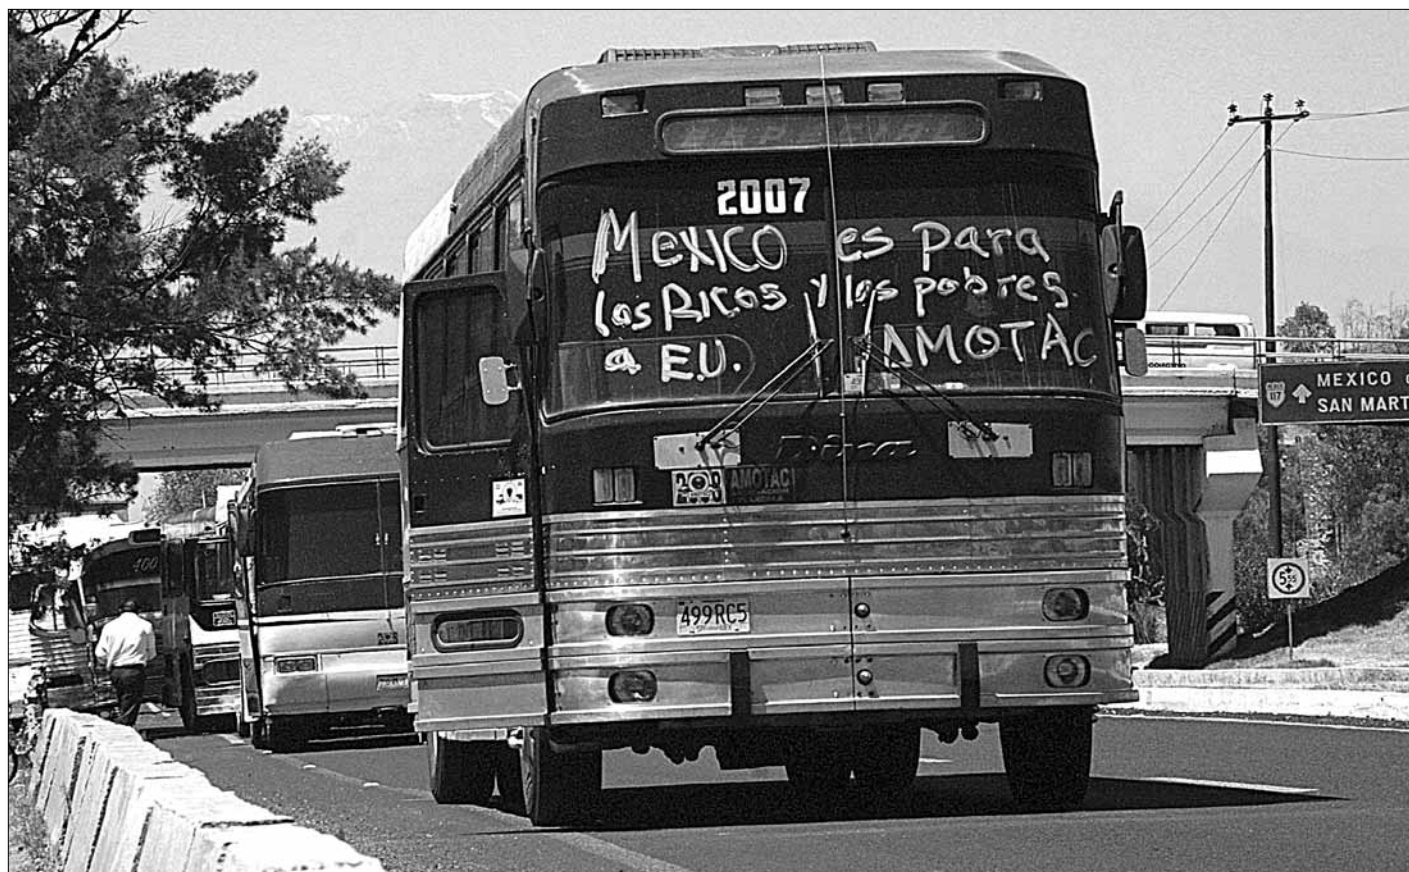 2007
MEXICO es para
los RICOS y los pobres
a E.U. AMOTAC
Dina
AMOTAC
499RC5
400
MEXICO
SAN MART
117
5.5